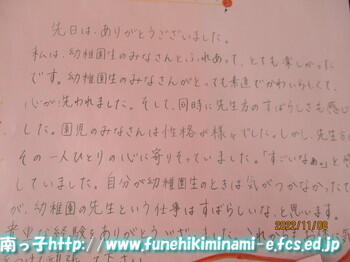 先日は、ありがとうございました。
私は、幼稚園生のみなさんとふれあって、とても楽しかった
です。幼稚園生のみなさんがとっても素直でかわいらしくて、
心が洗われました。そして、同時に先生方のすばらしさも感じ
した。園児のみなさんは性格が様々でした。しかし、先生方
その一人ひとりの心に寄りそっていました。「すごいなぁ。」と感
していました。自分が幼稚園生のときは気がつかなかって
が、幼稚園の先生という仕事はすばらしいな、と思います。
な経験をありがとうございました。これからもお体に気
張って下さい
2022/11/08
南っ子http://www.funehikiminami-e.fcs.ed.jp